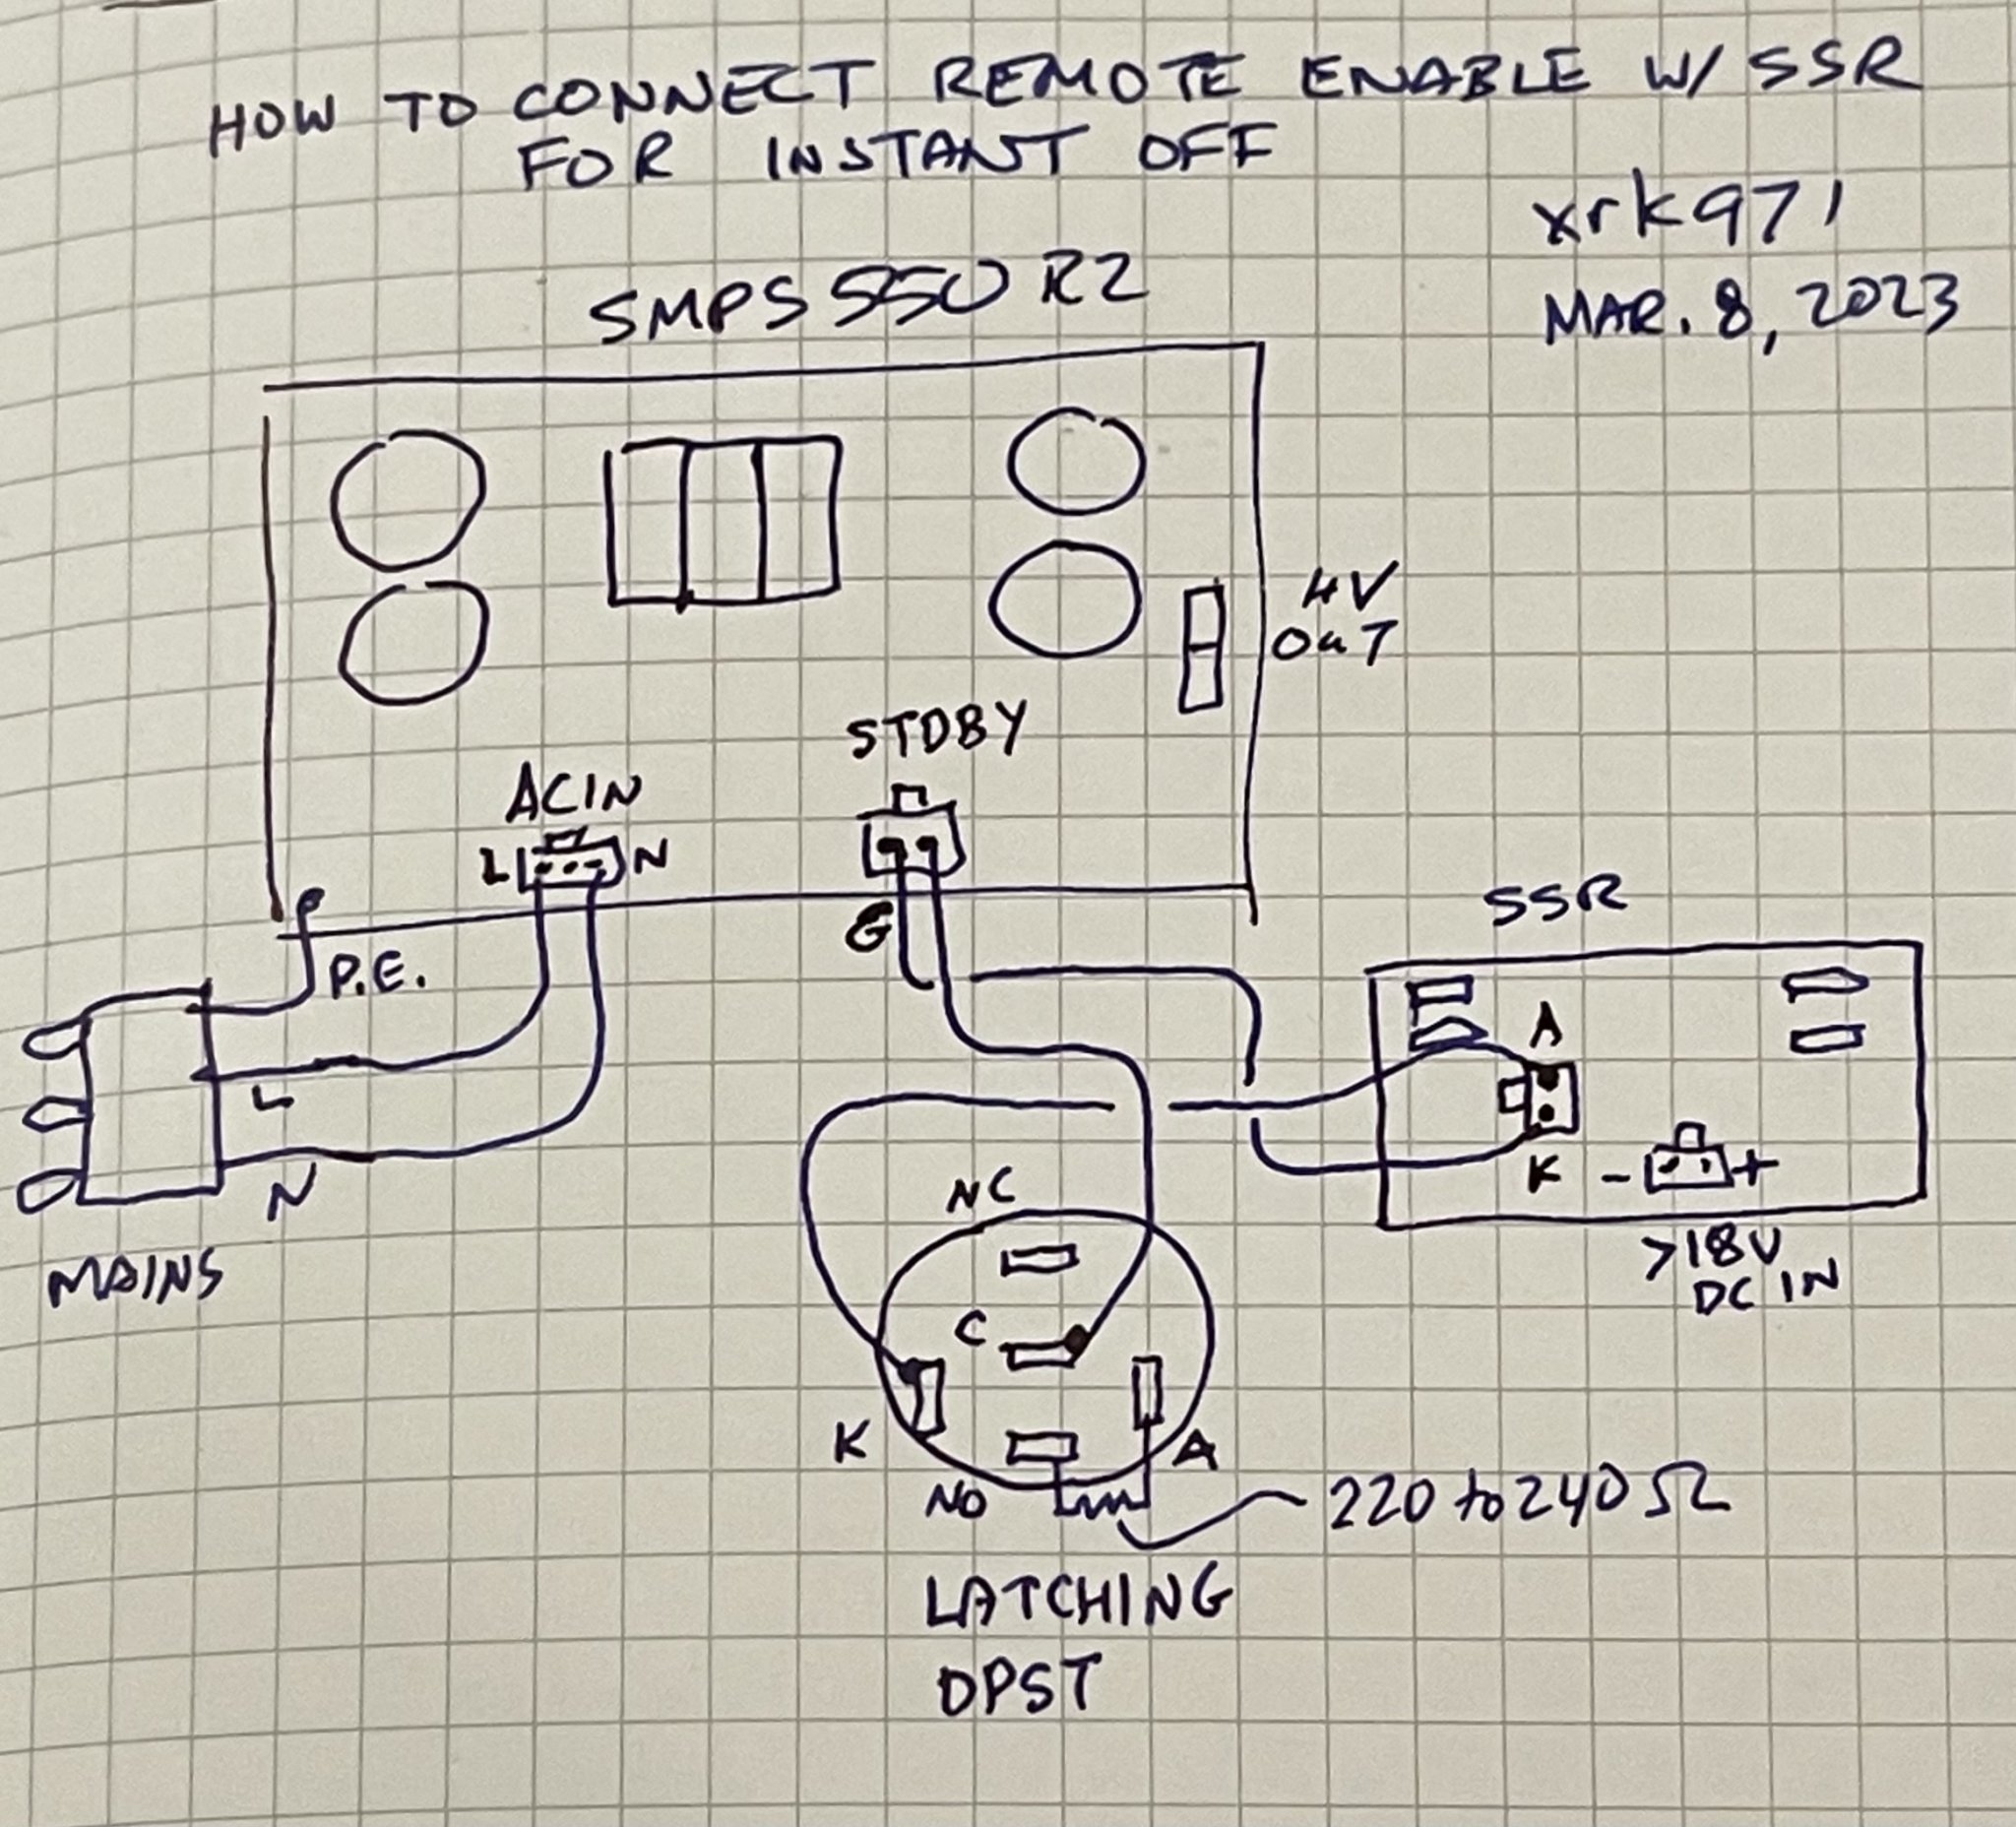 HOW TO CONNECT REMOTE ENABLE W/ SSR
FOR INSTANT OFF
xrk971
MAR. 8, 2023
SMPS 550 R2
HV
OUT
STDBY
ACIN
L N
G
P.E.
L
N
MAINS
SSR
A
K - +
>18V
DC IN
NC
C
K
A
NO
220 to 240 Ω
LATCHING
DPST